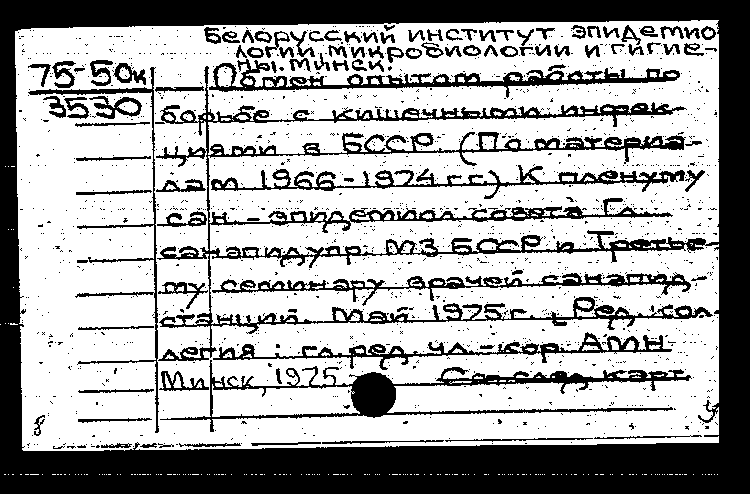 Белорусский институт эпидемио
логии, микробиологии и гигие-
ны. Минск.
75-50к Обмен опытом работы по
3530 борьбе с кишечными инфек-
циями в БССР (По материа-
лам 1966-1974 гг.) К пленуму
сан.-эпидемиол. совета Гл.
санэпидупр. МЗ БССР и Третье-
му семинару врачей санэпид-
станций. Май 1975 г. [Ред. кол-
легия: гл. ред. чл.-кор. АМН
Минск, 1975 См. след. карт.
8 У